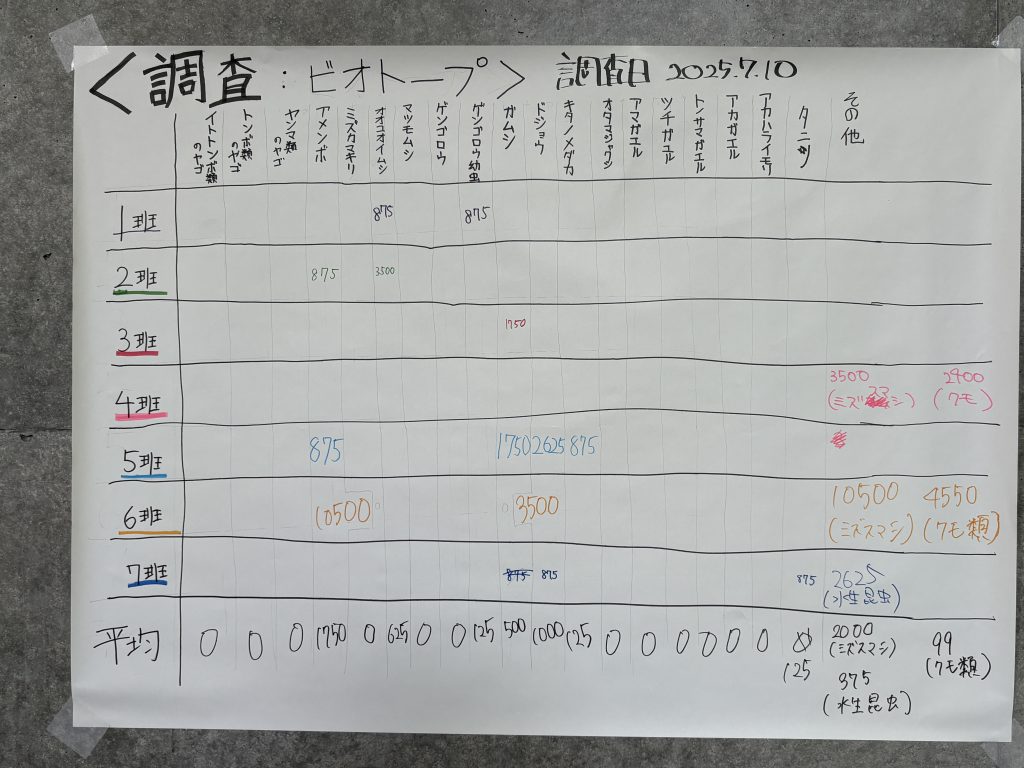 ＜調査：ビオトープ＞ 調査日 2025.7.10
イトトンボ類のヤゴ トンボ類のヤゴ ヤンマ類のヤゴ アメンボ ミズカマキリ オオコオイムシ マツモムシ ゲンゴロウ ゲンゴロウ幼虫 ガムシ ドジョウ キタノメダカ オタマジャクシ アマガエル ツチガエル トノサマガエル アカガエル アカハライモリ タニシ その他
1班 875 875
2班 875 3500
3班 1750
4班 3500 2400
(ミズスマシ) (クモ)
5班 875 1750 2625 875
6班 10500 3500 10500 4550
(ミズスマシ) (クモ類)
7班 875 875 875 2625
(水生昆虫)
平均 0 0 0 1750 0 625 0 0 125 500 1000 125 0 0 0 0 0 0 0 2000 99
(ミズスマシ) (クモ類)
125 375
(水生昆虫)